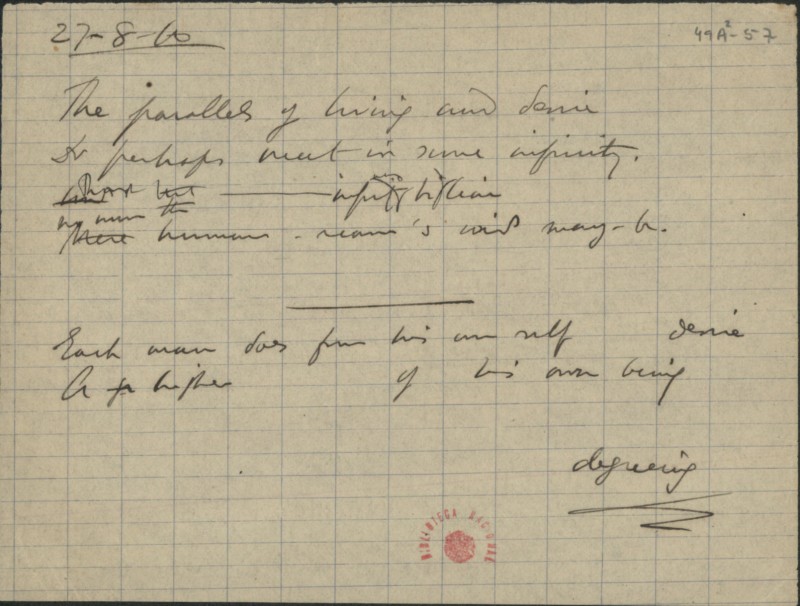 27-8-10
49A²-57
The parallels of living and desire
Do perhaps meet in some infinity.
but
no more than
human-reason's void may-be.
Each man does from his own self desire
A higher of his own being
degreeing
BIBLIOTECA NACIONAL